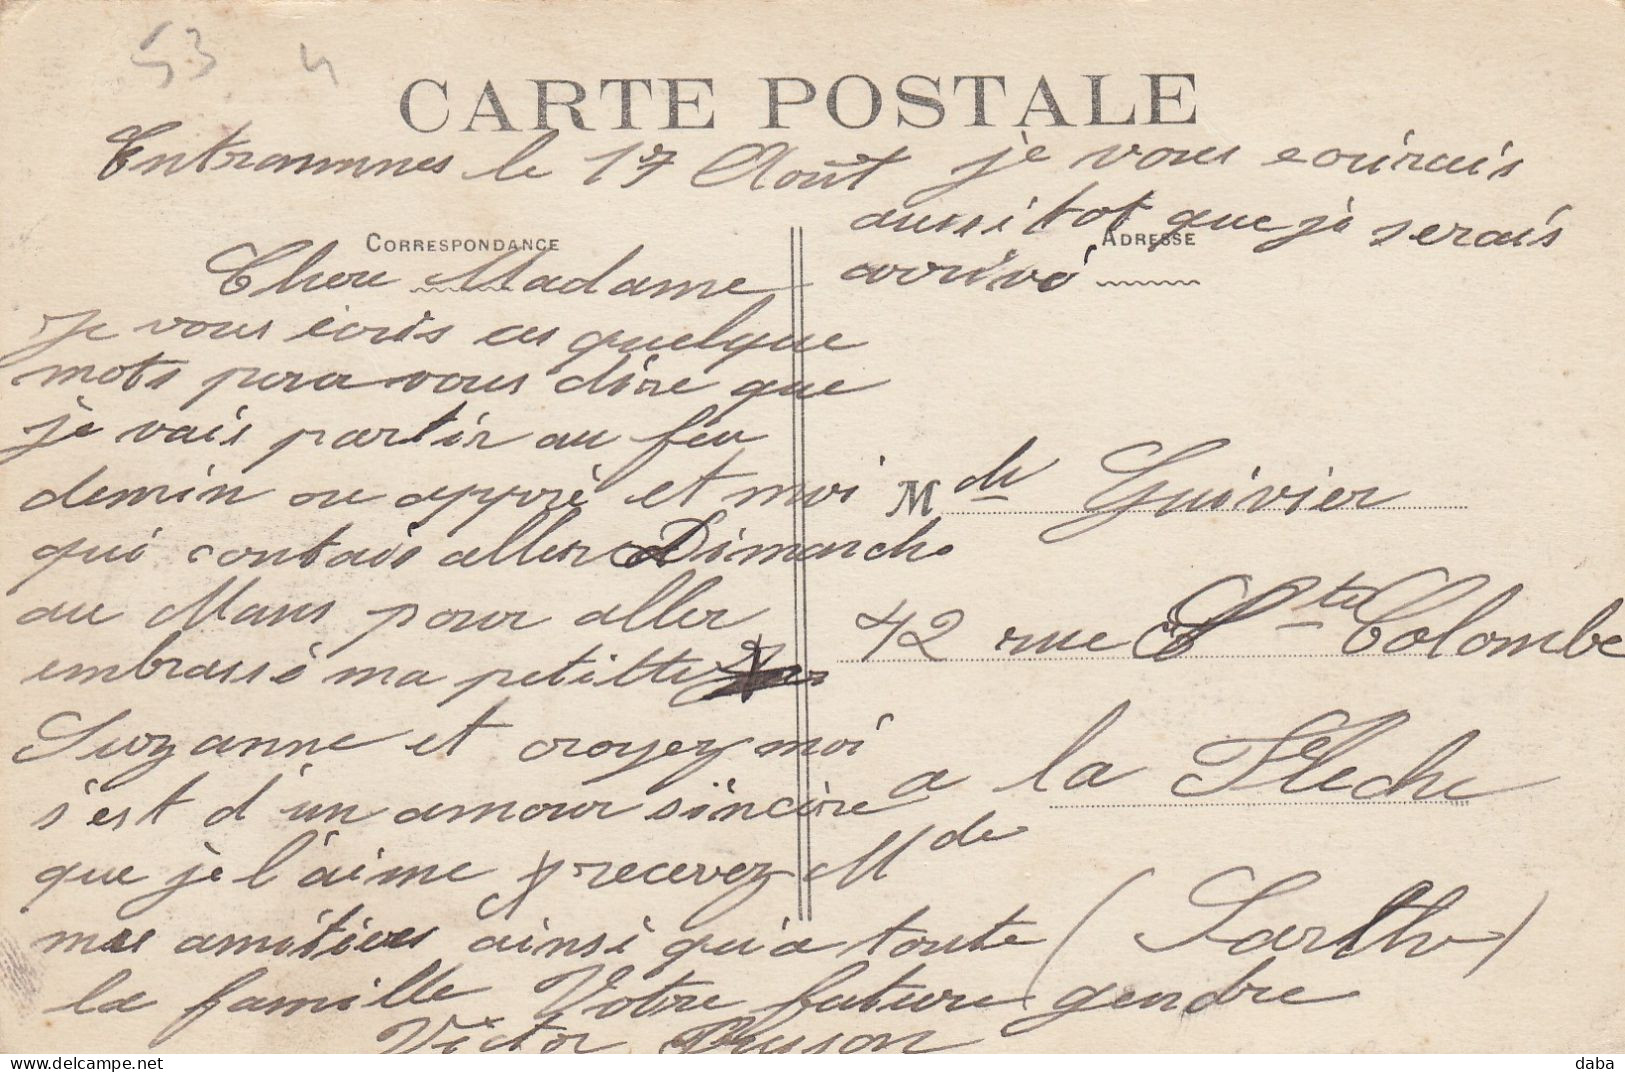 53 4
CARTE POSTALE
Entrammes le 17 Août
je vous ecrirais
aussitot que je serais
arrivé
CORRESPONDANCE
ADRESSE
Chere Madame
je vous écris ces quelque
mots pour vous dire que
je vais partir au feu
demin ou apprè et moi
qui contais aller Dimanche
au Mans pour aller
embrassé ma petitte
Suzanne et croyez moi
s'est d'un amour sincère
que je l'aime recevez Mde
mes amitiers ainsi qu'a toute
la famille Votre future gendre
Victor
Mde Guivier
42 rue Ste Colombe
a la Fleche
(Sarthe)
delcampe.net
daba